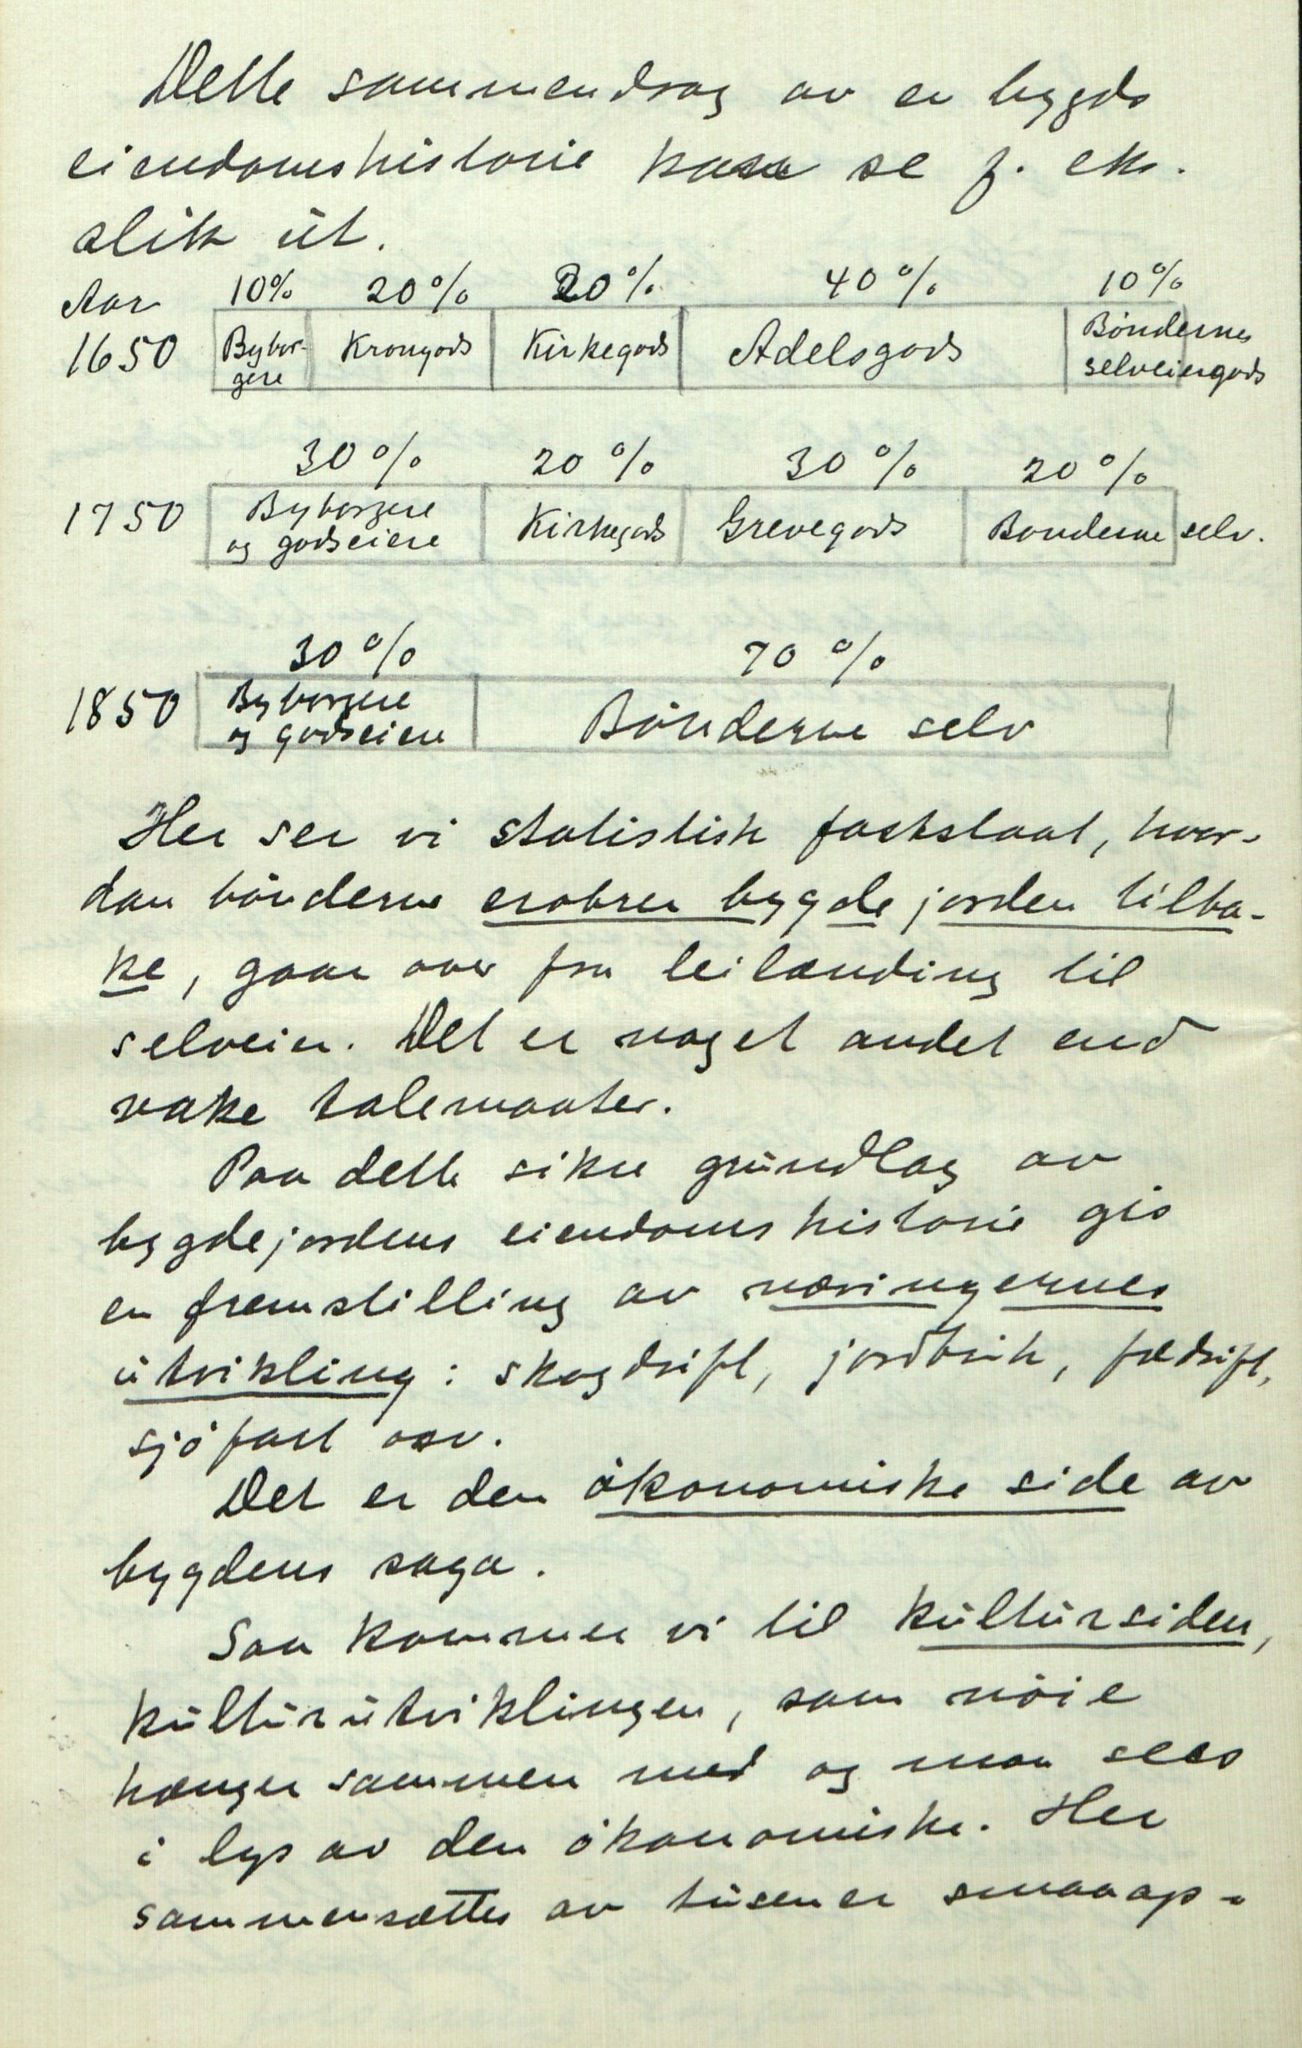 Dette sammendrag av en bygds
eiendomshistorie kan se f. eks.
slik ut.
Aar 10% 20% 20% 40% 10%
1650 Bybor- Krongods Kirkegods Adelsgods Bøndernes
gere selveiergods
30% 20% 30% 20%
1750 Byborgere Kirkegods Grevegods Bønderne selv.
og godseiere
30% 70%
1850 Byborgere Bønderne selv
og godseiere
Her ser vi statistisk fastslaat, hvor-
dan bønderne erobrer bygdejorden tilba-
ke, gaar over fra leilænding til
selveier. Det er noget andet end
vake talemaater.
Paa dette sikre grundlag av
bygdejordens eiendomshistorie gis
en fremstilling av næringernes
utvikling: skogdrift, jordbruk, fædrift,
sjøfart osv.
Det er den økonomiske side av
bygdens saga.
Saa kommer vi til kultursiden,
kulturutviklingen, som nøie
hænger sammen med og maa sees
i lys av den økonomiske. Her
sammensættes av tusener smaaop-